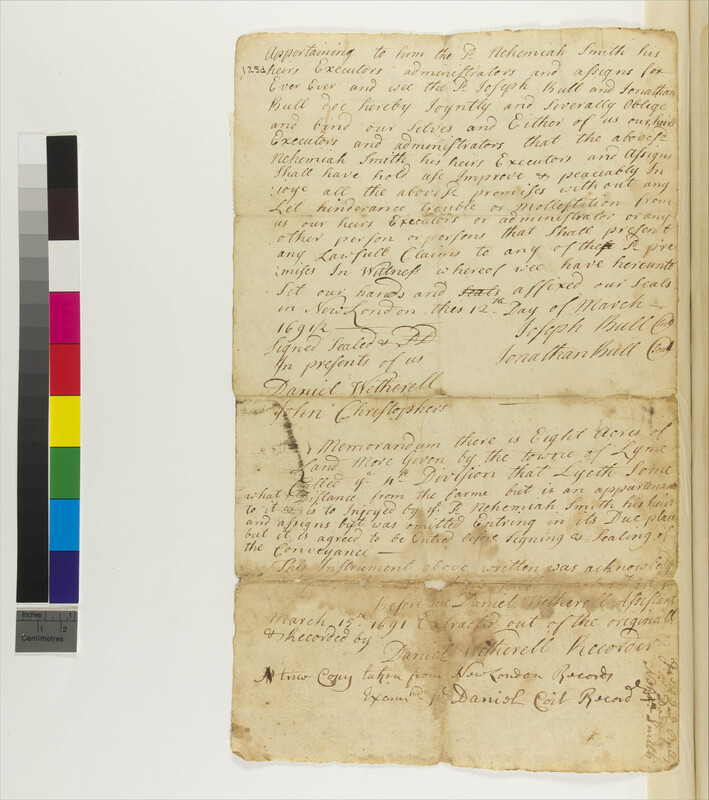 Appertaining to him the Sd Nehemiah Smith his
1253
heirs Executors administrators and assigns for
Ever Ever and wee the Sd Joseph Bull and Jonathan
Bull doe hereby Joyntly and Severally Oblige
and bynd our Selves and Either of us our heirs
Executors and administrators that the above Sd
Nehemiah Smith his heirs Executors and Assigns
Shall have hold use Improve & peaceably In
Joye all the above Sd premises without any
Let hinderance trouble or Mollestation from
us our heirs Executors or administrator or any
other person or persons that Shall present
any Lawfull Claims to any of the Sd pre
mises In Wittness whereof wee have hereunto
Set our hands and seals affixed our Seals
in New London this 12th Day of March
1691/2
Joseph Bull
Signed Sealed & Dd
Jonathan Bull
In presents of us
Daniel Wetherell
John Christophers
Memorandum there is Eight Acres of
Land More Given by the towne of Lyme
Called ye 4th Division that Lyeth Some
what Distance from the farme but is an appurtenance
to it & is to Injoyed by ye Sd Nehemiah Smith his heirs
and assigns but was omitted Entring in its Due place
but it is agreed to be Entred before Signing & Sealing of
the Conveyance
This Instrument above written was acknowledg
Before me Daniel Wetherell Assistant
March 12th 1691 Extracted out of the originall
& Recorded by
Daniel Wetherell Recorder
A true Copy taken from New London Records
Examnd pr Daniel Coit Recordr
Smith
Inches
1
1
2
Centimetres